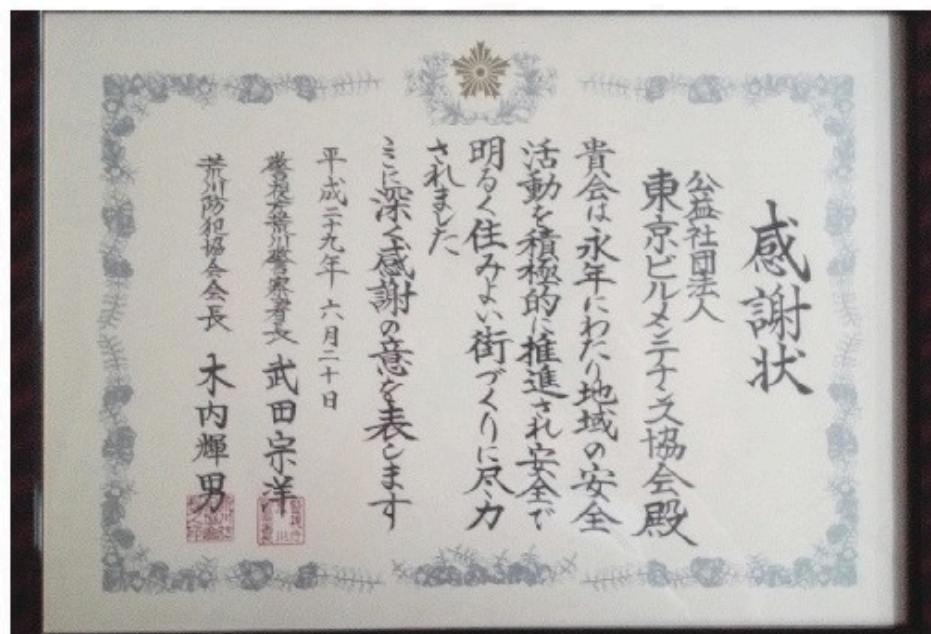 感謝状
公益社団法人
東京ビルメンテナンス協会殿
貴会は永年にわたり地域の安全
活動を積極的に推進され安全で
明るく住みよい街づくりに尽力
されました
ここに深く感謝の意を表します
平成二十九年六月二十日
警視庁荒川警察署長 武田宗洋
荒川防犯協会会長 木内輝男